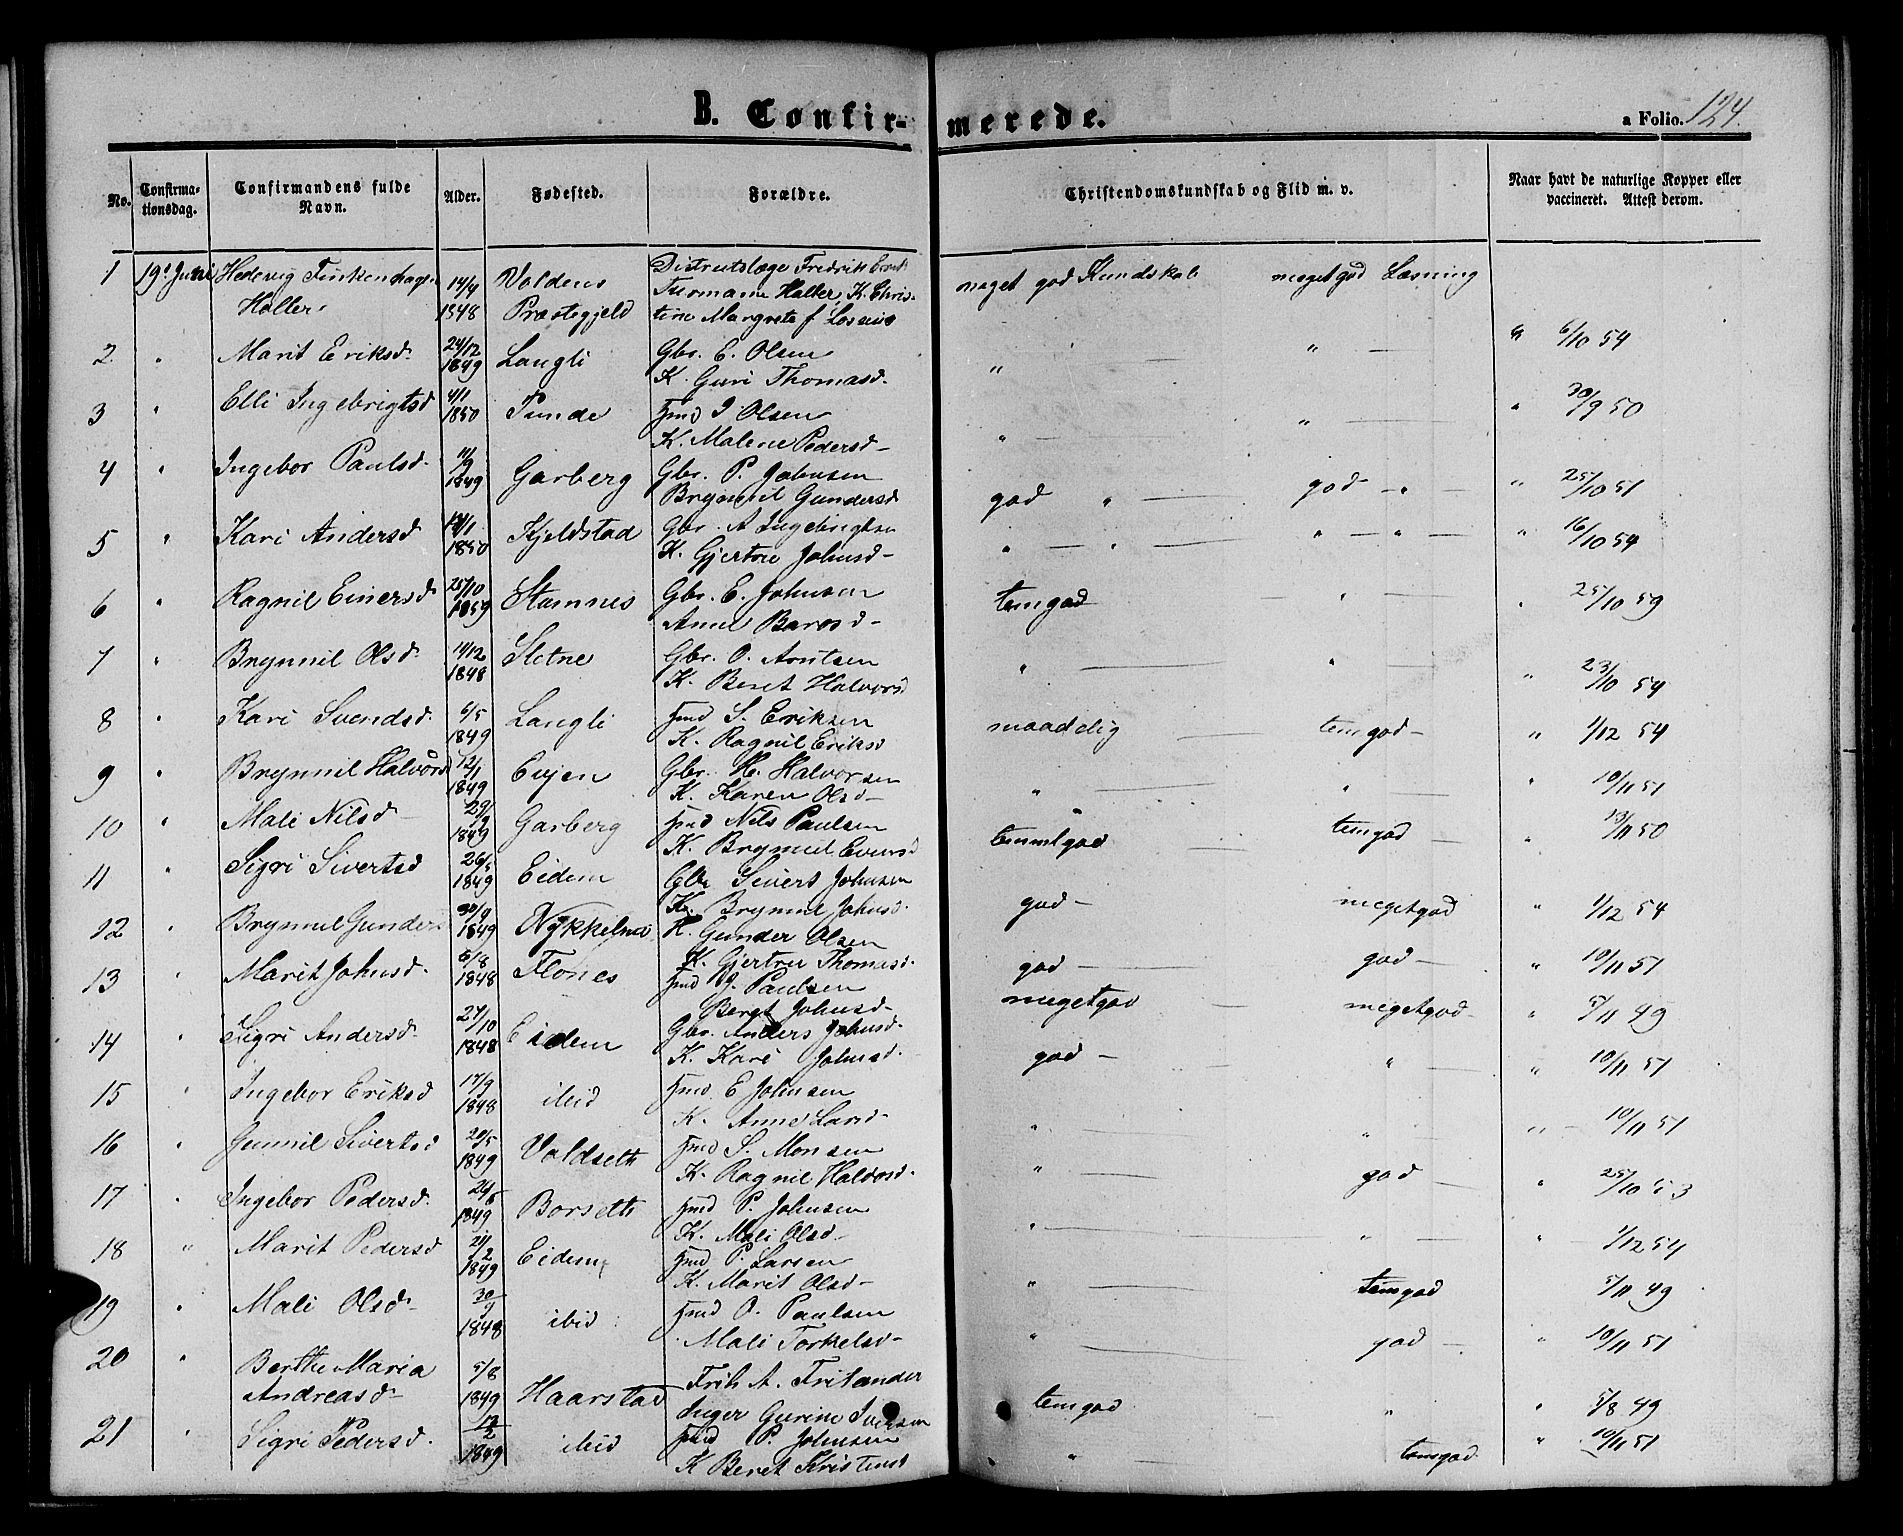 B. Confir-merede.
a Folio. 124.
No. Confirma-tionsdag. Confirmandens fulde Navn. Alder. Fødested. Forældre. Christendomskundskab og Flid m. v. Naar havt de naturlige Kopper eller vaccineret. Attest derom.
1 19de Juni Hedevig Finkenhagen 14/4 Voldens Distrutslæge Fredrik meget god Kundskab meget god Læsning
Holler 1848 Præstegjeld Holler, K. Chris-
tine Margrete f.
2 " Marit Eriksd. 24/12 Langli Gbr. E. Olsen " — " — " 6/10 54
1849 K. Guri Thomasd.
3 " Elli Ingebrigtsd 4/1 Tunde Hmd I Olsen " — " — " 30/9 50
1850 K. Malene Pedersd-
4 " Ingebor Paulsd. 11/9 Garberg Gbr. P. Johnsen god " — god — " — " 25/10 51
1849 Brynnil Gundersd
5 " Kari Andersd Kjeldstad Gbr. A Ingebrigtsen " — " — " — " — " 16/10 54
1850 K. Gjertru Johnsd-
6 " Ragnil Einersd 25/10 Stamnes Gbr. E. Johnsen temgod — " — " 25/10 59
1859 Anne Barosd-
7 " Brynnil Olsd. 14/12 Sletne Gbr. O. Arntsen " — " — " 23/10 54
1848 K. Beret Halvorsd
8 " Kari Svendsd. 6/5 Langli Hmd S. Eriksen maadelig — temgod — " 1/12 54
1849 K. Ragnil Eriksd
9 " Brynnil Halvorsd 12/1 Evjen Gbr. H. Halvorsen " — " — " 10/11 51
1849 K. Karen Olsd-
10 " Mali Nilsd 29/9 Garberg Hmd Nils Paulsen temmlgod — temgod — " 13/11 50
1849 K. Brynnil Evensd
11 " Sigri Sivertsd 26/5 Eidem Gbr Sivert Johnsen god — megetgod " 1/12 54
1849 K. Brynnil Johnsd.
12 " Brynnil Gunders 30/9 H. Gunder Olsen god — god — " 10/11 51
1849 K. Gjertru Thomasd.
13 " Marit Johnsd. 6/8 Flones Hmd J. Paulsen megetgod — megetgod — " 5/11 49
1848 Beret Johnsd-
14 " Sigri Andersd. 27/10 Eidem Gbr. Anders Johnsd. god — " — " 10/11 51
1848 K. Kari Johnsd.
15 " Ingebor Eriksd 17/9 ibid Hmd E Johnsen " — " — " — 10/11 51
1848 K. Anne Larsd-
16 " Gunnil Sivertsd 20/5 Voldseth Hmd S. Monsen " — god — " 25/10 53
1849 K. Ragnil Halvosd.
17 " Ingebor Pedersd. 24/6 Borseth Hmd P. Johnsen " — " — " 1/12 54
1849 K. Mali Olsd-
18 " Marit Pedersd 21/2 Eidem Hmd P. Larsen " — temgod 5/11 49
1849 K. Marit Olsd-
19 " Mali Olsd. 30/9 ibid Hmd O. Paulsen " — god — " 10/11 51
1848 Mali Torkelsd-
20 " Berthe Maria 5/8 Frih A. Fritander temgod " " 5/8 49
Andreasd- 1849 Haarstad Inger Gurine Iversen
21 " Sigri Pedersd. 12/2 ibid Hmd P. Johnsen " — temgod " 10/11 51
1849 K Beret Kristensd